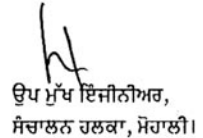 ਉਪ ਮੁੱਖ ਇੰਜੀਨੀਅਰ,
ਸੰਚਾਲਨ ਹਲਕਾ, ਮੋਹਾਲੀ।